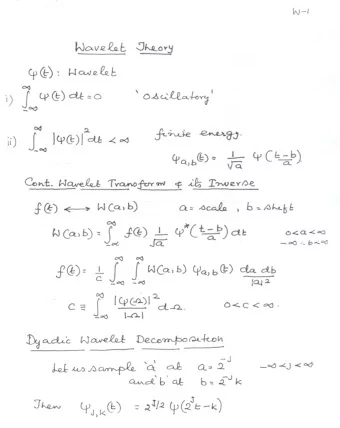 W-1
Wavelet Theory
ψ(t) : Wavelet
i) ∫_{-∞}^{∞} ψ(t) dt = 0 'oscillatory'
ii) ∫_{-∞}^{∞} |ψ(t)|² dt < ∞ finite energy.
ψ_{a,b}(t) = 1/√a ψ((t-b)/a)
Cont. Wavelet Transform & its Inverse
f(t) ⟷ W(a,b) a = scale, b = shift
W(a,b) = ∫_{-∞}^{∞} f(t) 1/√a ψ*((t-b)/a) dt 0<a<∞
-∞<b<∞
f(t) = 1/C ∫_{-∞}^{∞} ∫_{-∞}^{∞} W(a,b) ψ_{a,b}(t) da db/|a|²
C ≡ ∫_{-∞}^{∞} |ψ(Ω)|²/|Ω| dΩ. 0<C<∞.
Dyadic Wavelet Decomposition
Let us sample 'a' at a = 2^{-j} -∞<j<∞
and 'b' at b = 2^{-j} k
Then ψ_{j,k}(t) = 2^{j/2} ψ(2^j t-k)